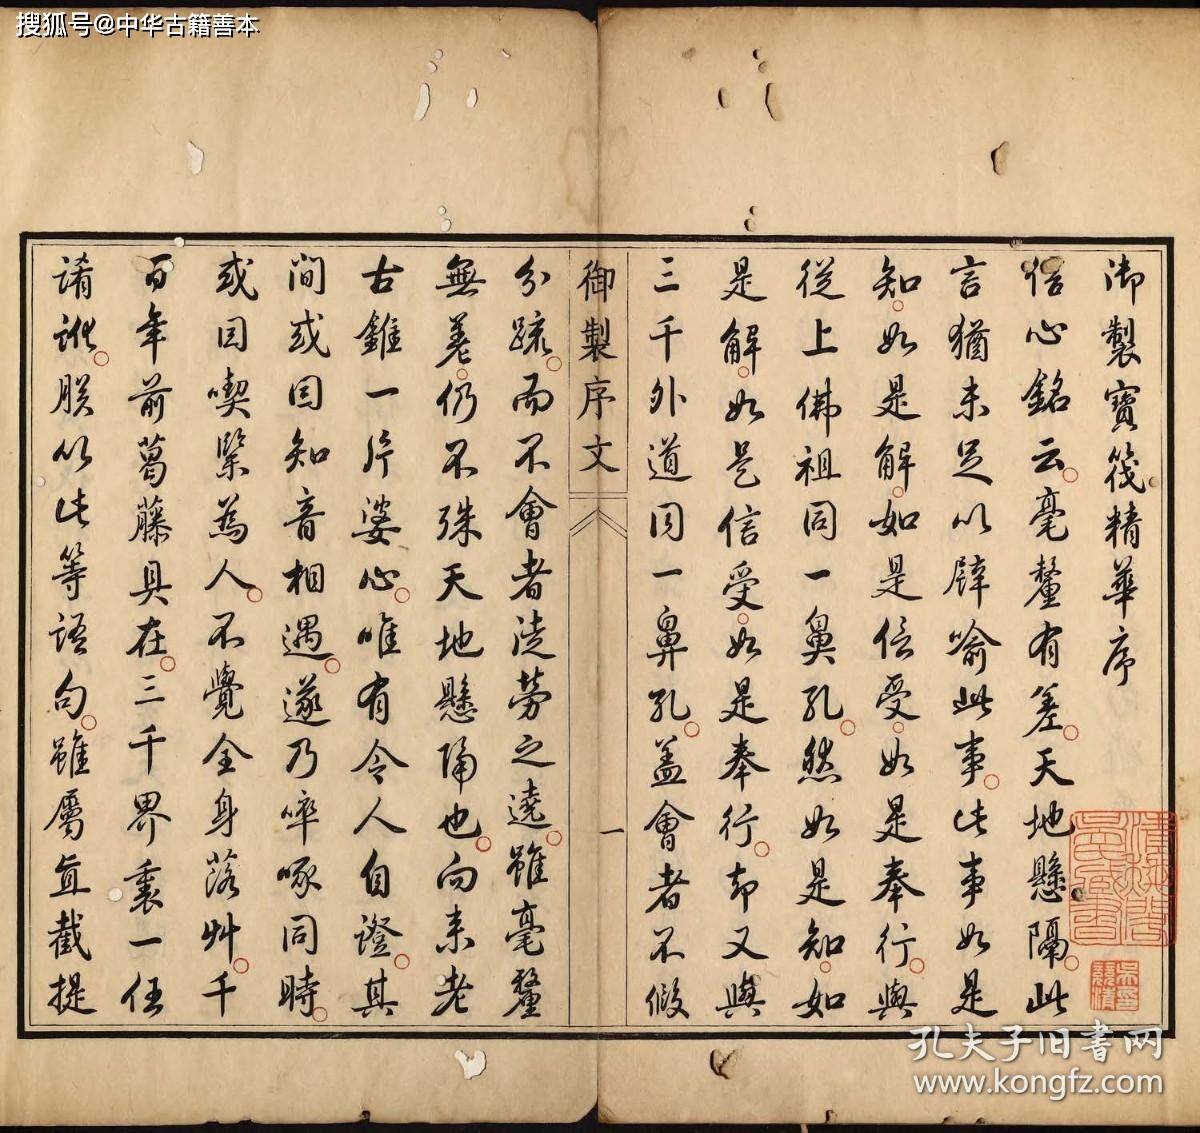 搜狐号@中华古籍善本
御製寶筏精華序
信心銘云。毫釐有差。天地懸隔。此
言猶未足以譬喻此事。此事如是
知。如是解。如是信受。如是奉行。與
從上佛祖同一鼻孔。然如是知。如
是解。如是信受。如是奉行。却又與
三千外道同一鼻孔。蓋會者不假
御製序文
一
分疏。而不會者徒勞之遶。雖毫釐
無差。仍不殊天地懸隔也。向來老
古錐一片婆心。唯有令人自證。其
間或因知音相遇。遂乃啐啄同時。
或因喫緊為人。不覺全身落艸。千
百年前葛藤具在。三千界裏一任
誵訛。朕以此等語句。雖屬直截提
孔夫子旧书网
www.kongfz.com